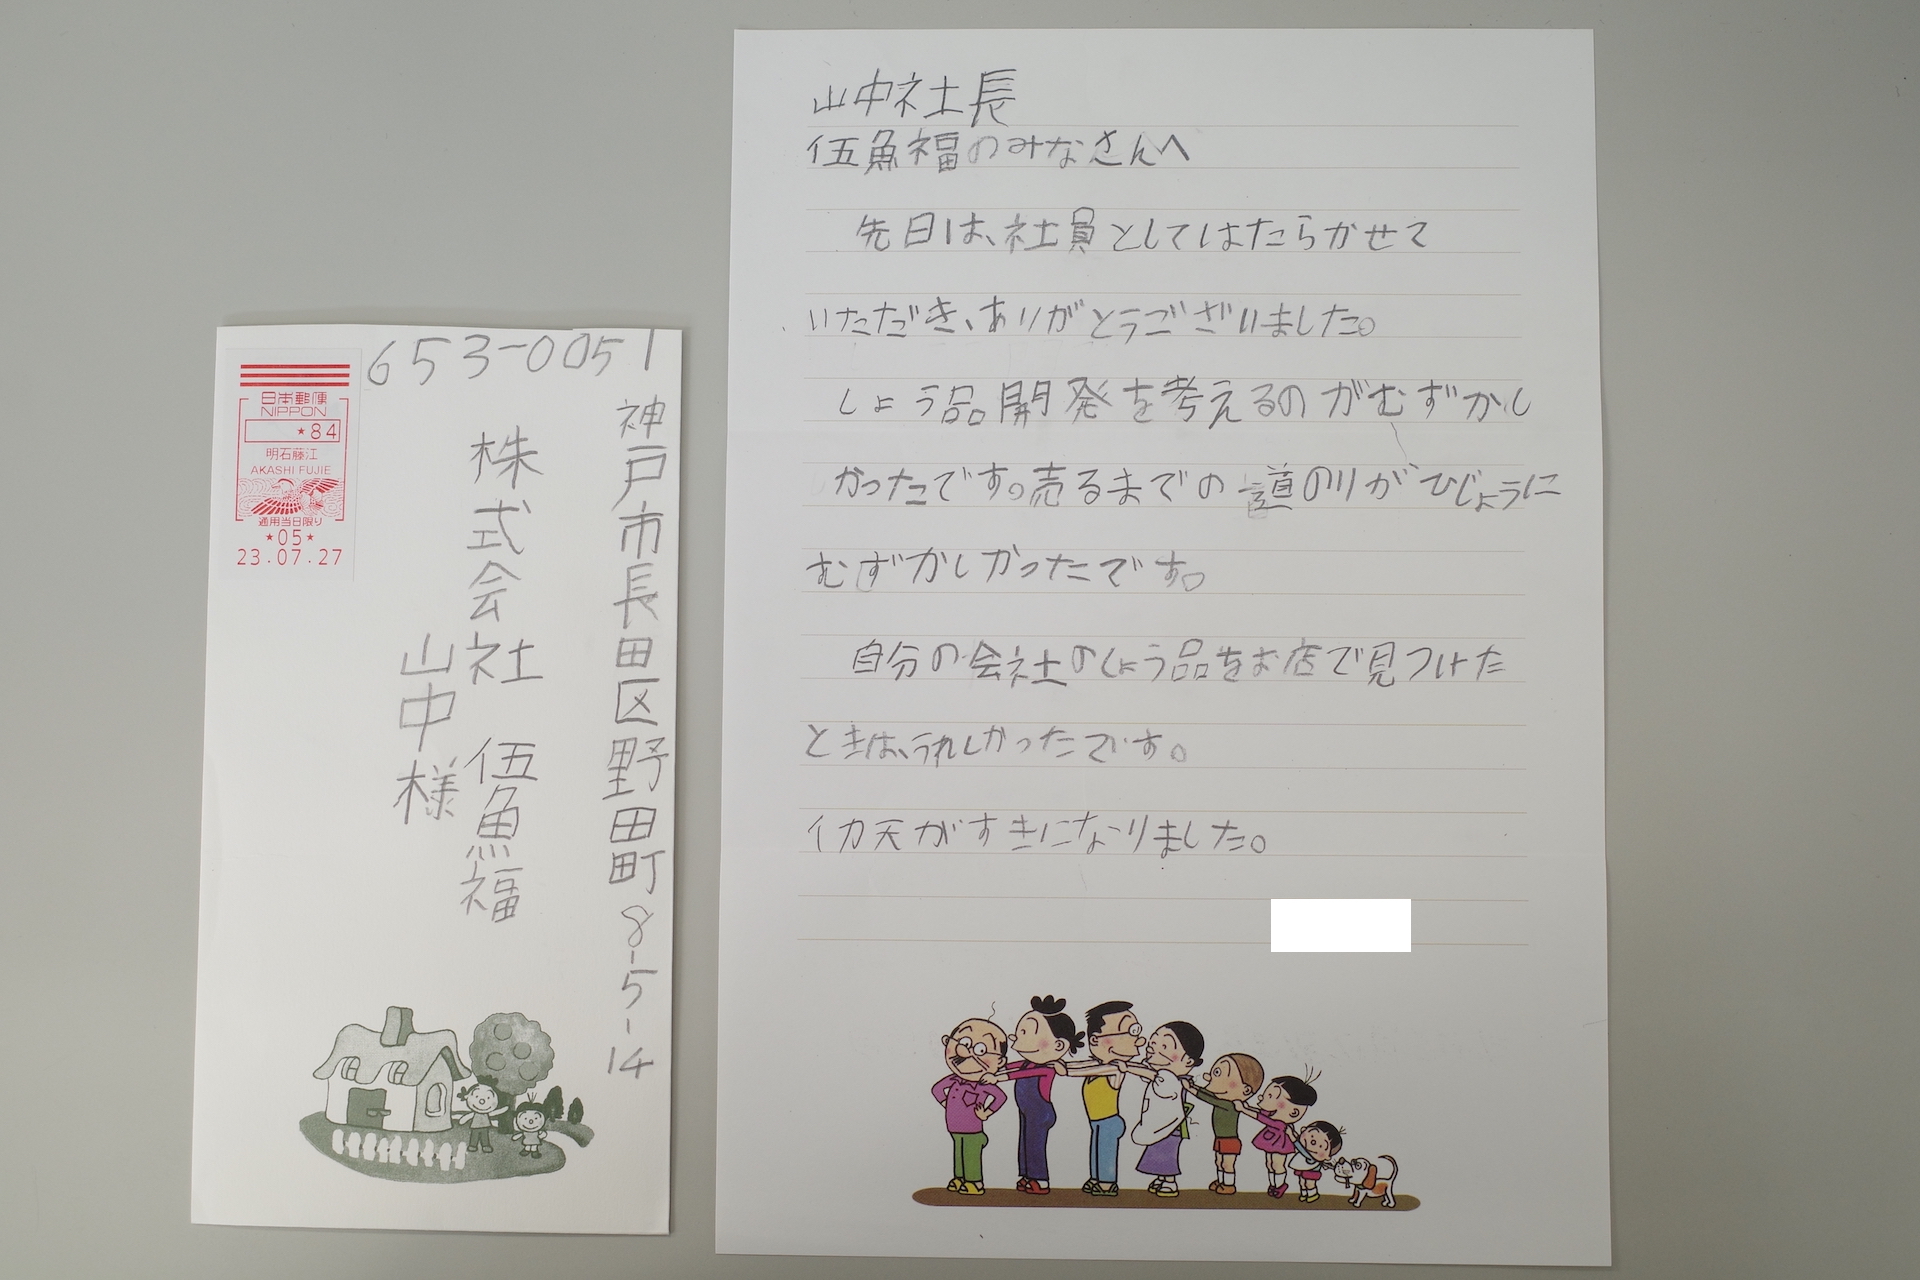 653-0051
神戸市長田区野田町8-5-14
株式会社 伍魚福
山中様
日本郵便
NIPPON
*84
明石藤江
AKASHI FUJIE
通用当日限り
*05*
23.07.27
山中社長
伍魚福のみなさんへ
先日は、社員としてはたらかせて
いただき、ありがとうございました。
しょう品開発を考えるのがむずかし
かったです。売るまでの道のりがひじょうに
むずかしかったです。
自分の会社のしょう品をお店で見つけた
ときは、うれしかったです。
イカ天がすきになりました。